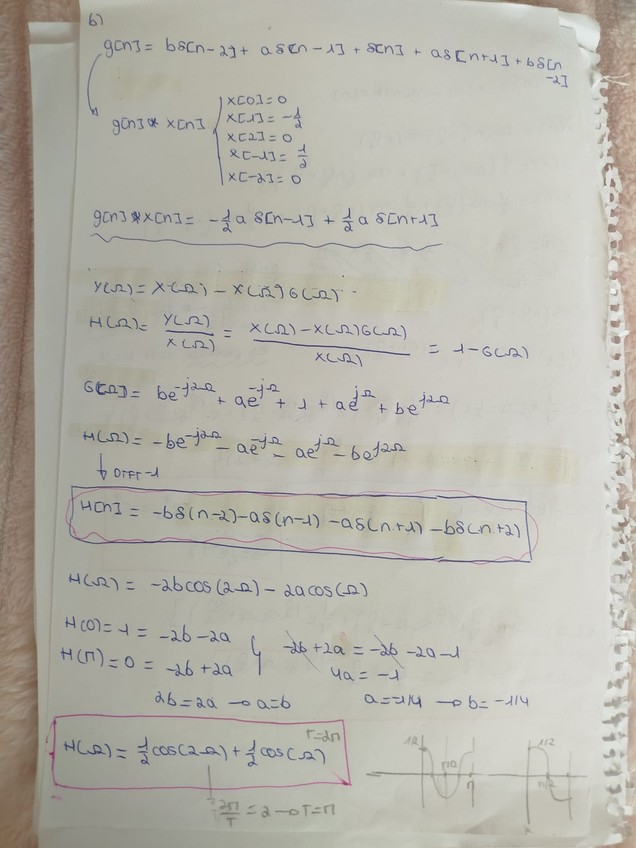 b)
g[n] = bδ[n-2] + aδ[n-1] + δ[n] + aδ[n+1] + bδ[n
-2]
g[n] * x[n]
x[0] = 0
x[1] = -1/2
x[2] = 0
x[-1] = 1/2
x[-2] = 0
g[n] * x[n] = -1/2 a δ[n-1] + 1/2 a δ[n+1]
Y(Ω) = X(Ω) - X(Ω)G(Ω)
H(Ω) = Y(Ω)/X(Ω) = X(Ω)-X(Ω)G(Ω)/X(Ω) = 1-G(Ω)
G(Ω) = be^-j2Ω + ae^-jΩ + 1 + ae^jΩ + be^j2Ω
H(Ω) = -be^-j2Ω - ae^-jΩ - ae^jΩ - be^j2Ω
↓ DTFT-1
H[n] = -bδ(n-2)-aδ(n-1) -aδ(n+1) -bδ(n+2)
H(Ω) = -2bcos(2Ω) - 2acos(Ω)
H(0) = 1 = -2b-2a
H(π) = 0 = -2b+2a
-2b+2a = -2b-2a-1
4a = -1
2b = 2a → a=b
a = -1/4 → b = -1/4
T=2π
H(Ω) = 1/2 cos(2Ω) + 1/2 cos(Ω)
2π/T = 2 → T=π
1/2
π/2
π
1/2
π/2